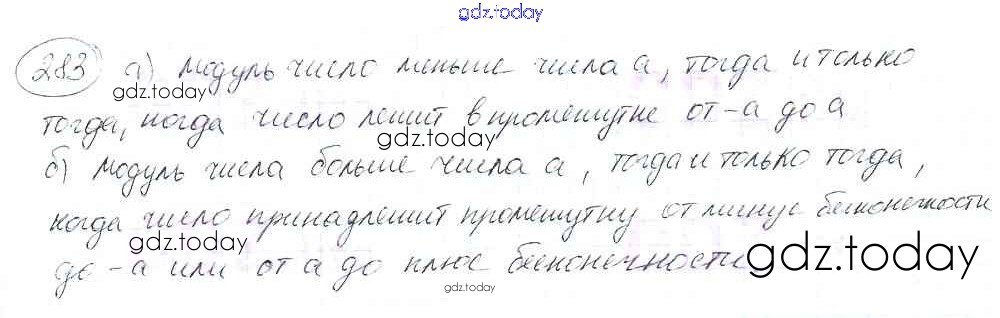 gdz.today
283 а) Модуль число меньше числа а, тогда и только
gdz.today
тогда, когда число лежит в промежутке от -а до а
gdz.today
б) Модуль числа больше числа а, тогда и только тогда,
когда число принадлежит промежутку от минус бесконечности
gdz.today
gdz.today
до -а или от а до плюс бесконечности
gdz.today
gdz.today